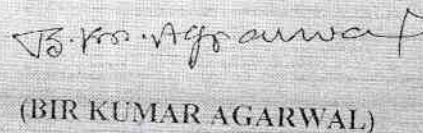 B. Kr. Agrarwal
(BIR KUMAR AGARWAL)